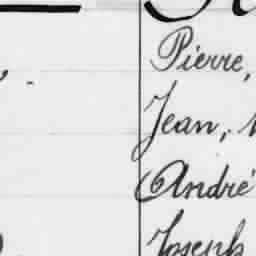 Pierre,
Jean,
André
Joseph